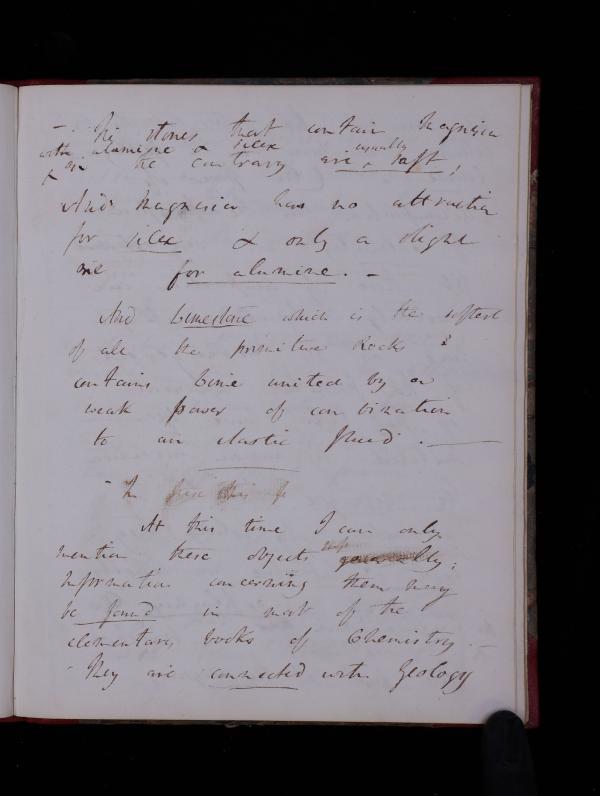 – The stones that contain Magnesia
with alumine & silex usually
& on the contrary are soft;
And Magnesia has no attraction
for silex & only a slight
one for alumine. –
And limestone which is the softest
of all the primitive Rocks
contains lime united by a
weak power of combination
to an elastic fluid. —
– The
At this time I can only
mention these objects generally;
Information concerning them may
be found in most of the
elementary books of Chemistry –
– They are connected with Geology